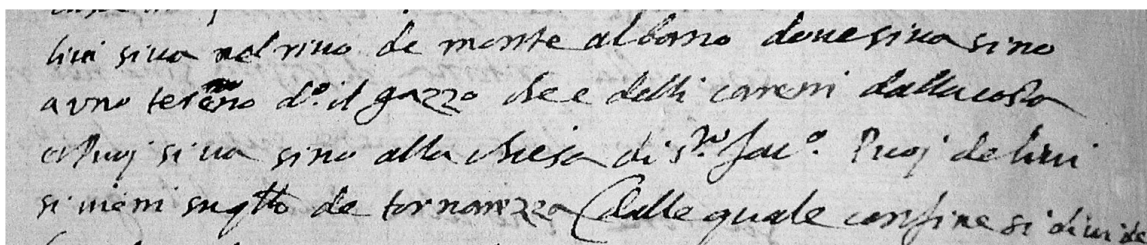 livi si va nel rivo de monte albano dove si va sino
a uno tereno d.º il gazzo che e delli careni dalla costa
et Puoj si va sino alla chiesa di S.ᵗᵒ Jac.º Puoj de livi
si vieni su de tornarezza (dalle quale confine si divide